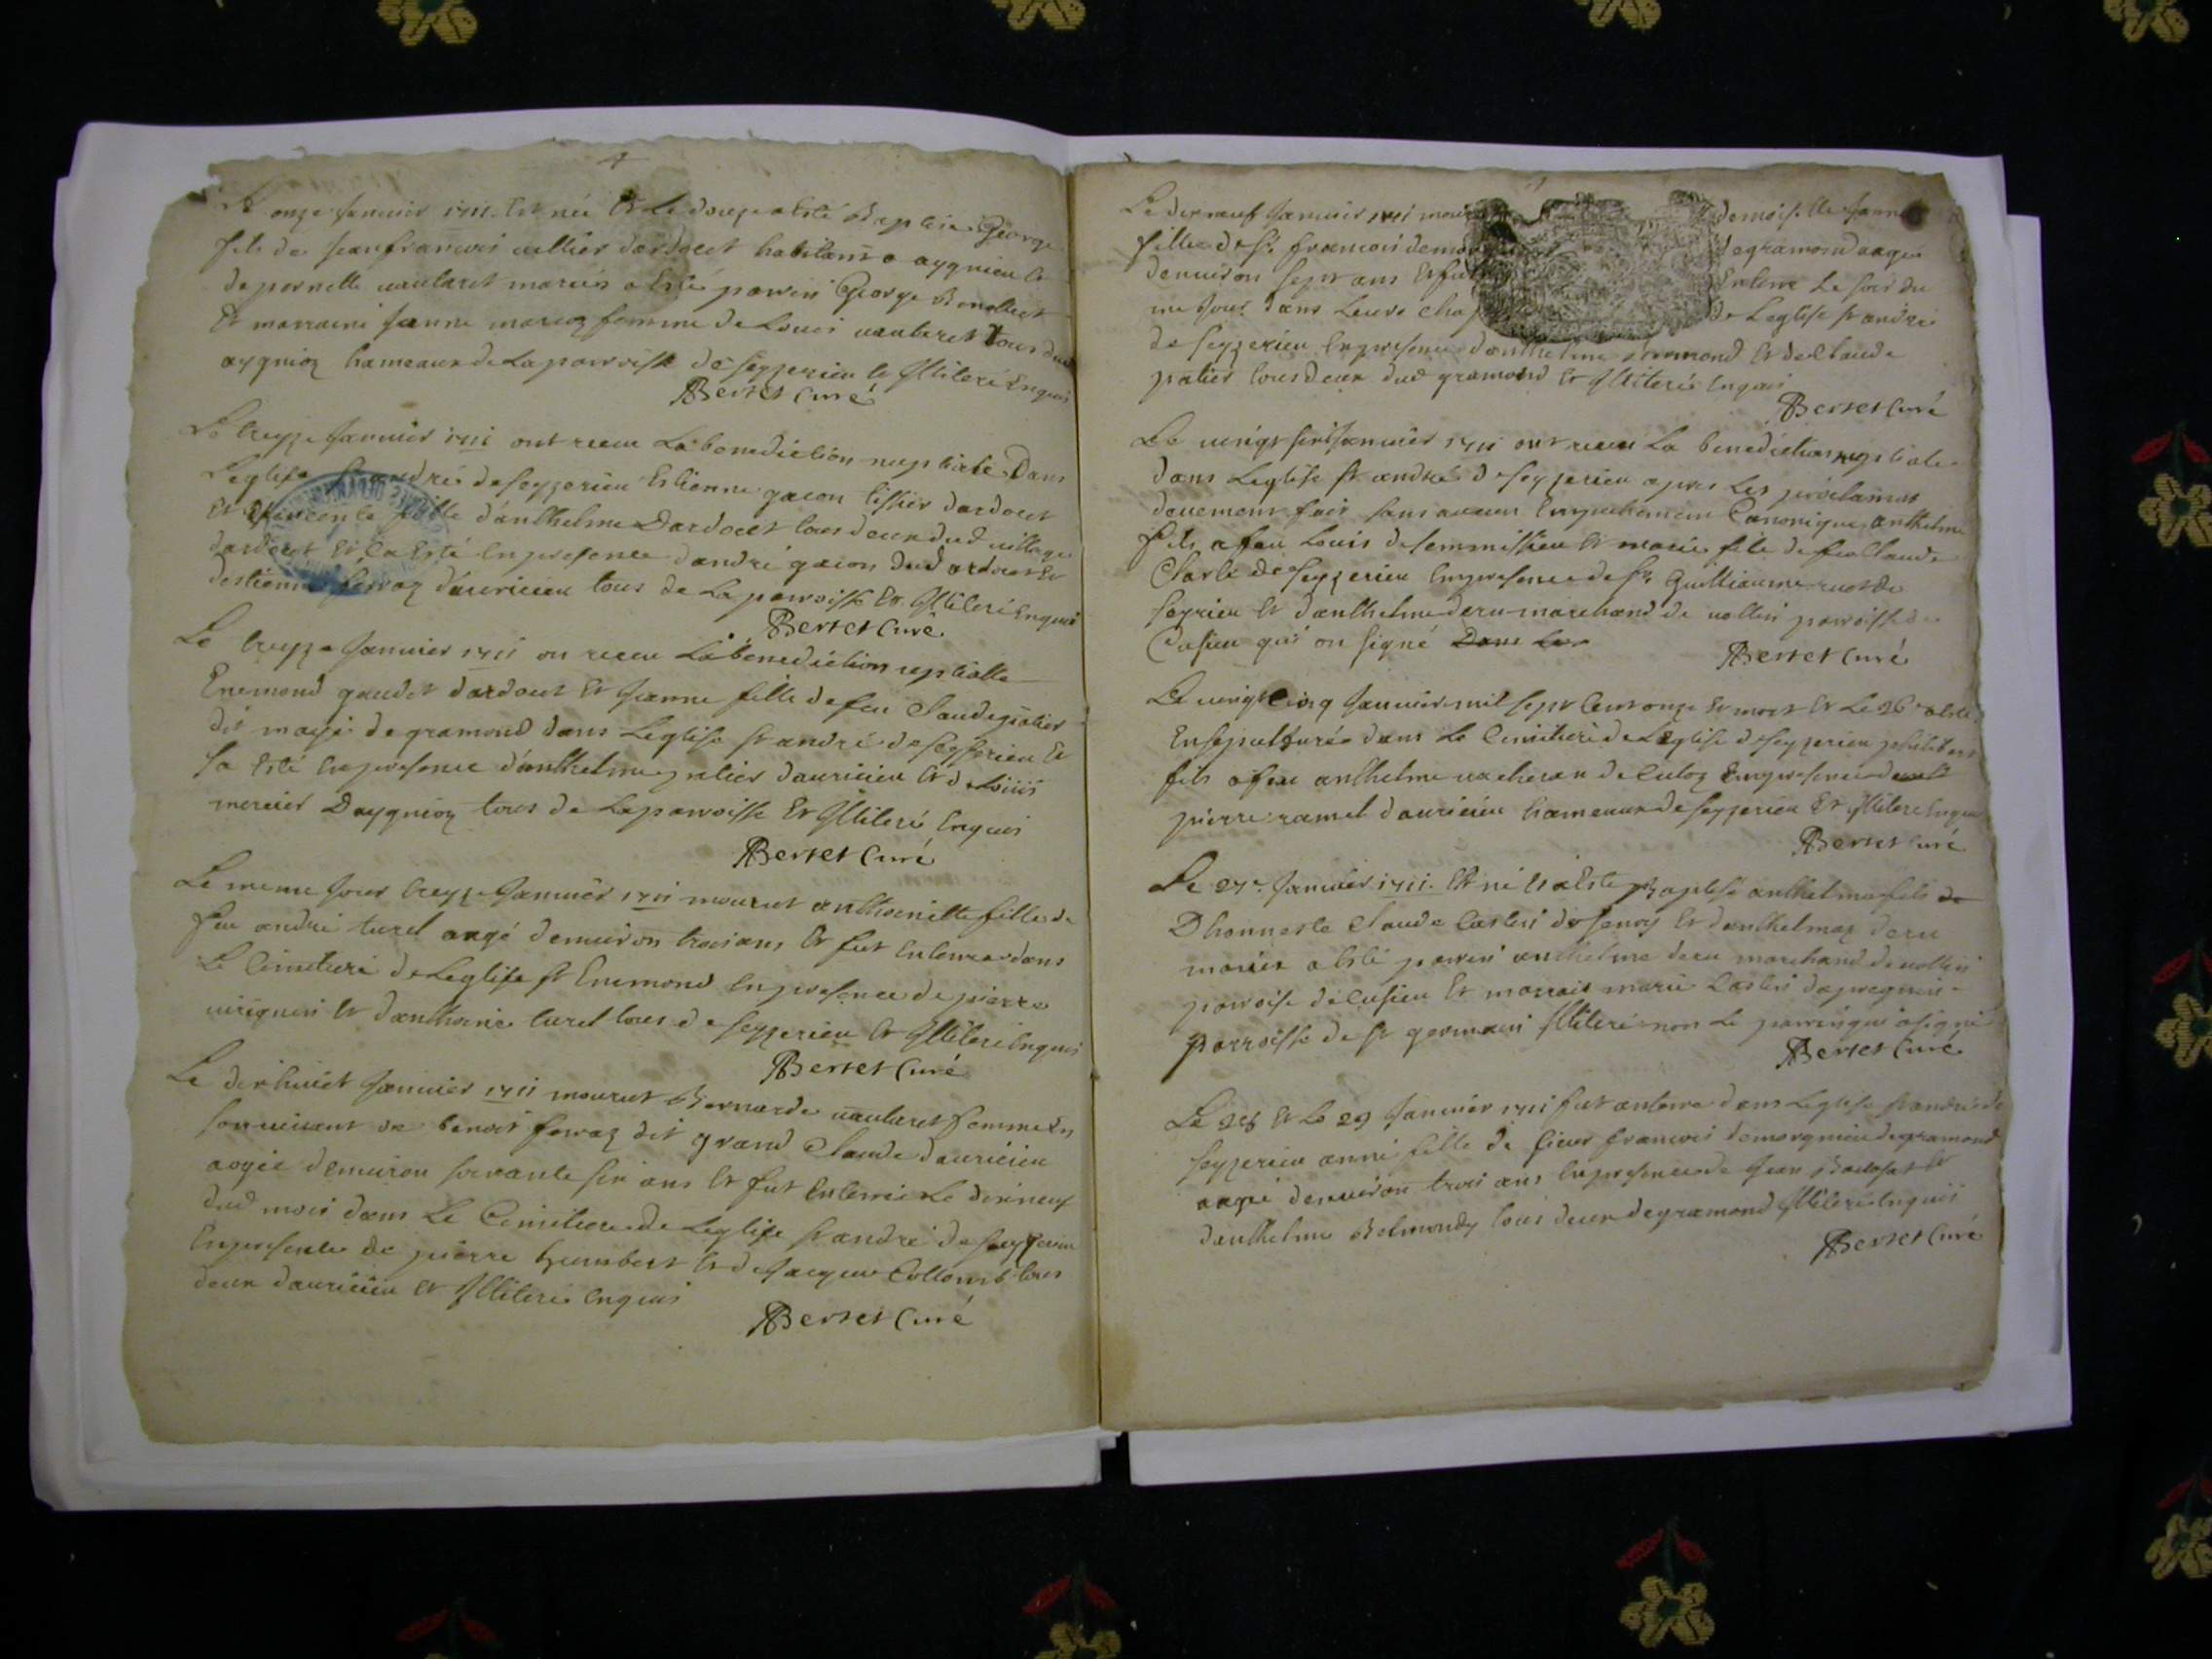 Le onze Janvier 1711 Est née Et Le douze a esté Baptise George
fils de Jean francois cullier dardoset habitant a aygnieu Et
de pernette vautaret mariés a Esté parrin George Bonollect
Et marraine Jeanne femme de Louis vautaret tous dud
aygnioz hameaux de La parroisse de seyzerieu Et Illiteré Enquis
Berset Curé
Le treyze Janvier 1711 ont receu La benediction nuptiale Dans
L'eglise St andré de seyzerieu Estienne gacon tissier dardoset
Et fille d'anthelme Dardocet tous deux dud village
dardoset Et la Esté En presence d'andré gacon dud ardoset Et
destienne ferraz d'auricieu tous de La parroisse Et Illiteré Enquis
Berset Curé
Le treyze Janvier 1711 on receu La benediction nuptialle
Enemond gaudet dardoset Et Jeanne fille de feu Claude patier
dit de gramond dans L'eglise St andré de seyzerieu Et
sa Esté En presence d'anthelme patier d'auricieu Et de Louis
mercier Daygnioz tous de La parroisse Et Illiteré Enquis
Berset Curé
Le meme Jour treyze Janvier 1711 mourut anthoinette fille de
feu andré turel aagé denuiron trois ans Et fut Enterree dans
Le Cimetiere de L'eglise St Enemond En presence de pierre
Et d'anthoine turel tous de seyzerieu Et Illiteré Enquis
Berset Curé
Le dixhuict Janvier 1711 mourut Bernarde vautaret femme En
son vivant de benoit ferraz dit grand Claude d'auricieu
aagée denuiron soixante six ans Et fut Enterrée Le dixneuf
dud mois dans Le Cimitiere de L'eglise St andré de seyzerieu
En presence de pierre humbert Et de Jacques Collomb tous
deux d'auricieu Et Illiteré Enquis
Berset Curé
Le dixneuf Janvier 1711 demoiselle Jeanne
fille de Sr francois de gramond aagée
denuiron sept ans Et fut Enterre Le soir du
me Jour dans Leurs de L'eglise St andré
de seyzerieu En presence d'anthelme Et de Claude
patier tous deux dud gramond Et Illiterés Enquis
Berset Curé
Le vingt Janvier 1711 ont receu La benediction nuptiale
dans L'eglise St andré de seyzerieu apres Les proclamas
deuement fait sans aucun Empechement Canonique anthelme
fils a feu Louis Et marie fille de feu Claude
Charle de seyzerieu En presence de Sr Guilliaume
Et d'anthelme deru marchand de vollin parroisse de
Cusieu qui on signé
Berset Curé
Le vingt cinq Janvier mil sept Cent onze Et mort Et Le 26e a esté
Ensepulturée dans Le Cimitiere de L'eglise de seyzerieu philibert
fils a feu anthelme de culoz En presence de
pierre ramel d'auricieu hameaux de seyzerieu Et Illiteré Enquis
Berset Curé
Le 27e Janvier 1711. Est né Et a Esté Baptisé anthelme fils de
Dhonneste Claude Castin de senoy Et danthelmaz deru
mariés a Esté parrin anthelme deru marchand de vollin
parroisse de Cusieu Et marraine marie Castin
parroisse de St germain Illiteré non Le parrin qui a signé
Berset Curé
Le 28 Et Le 29 Janvier 1711 fut anterre dans L'eglise St andré de
seyzerieu anne fille de sieur francois demorgnieu de gramond
aagée denuiron trois ans En presence de Jean Et
d'anthelme Belmondy tous deux de gramond Illiteré Enquis
Berset Curé